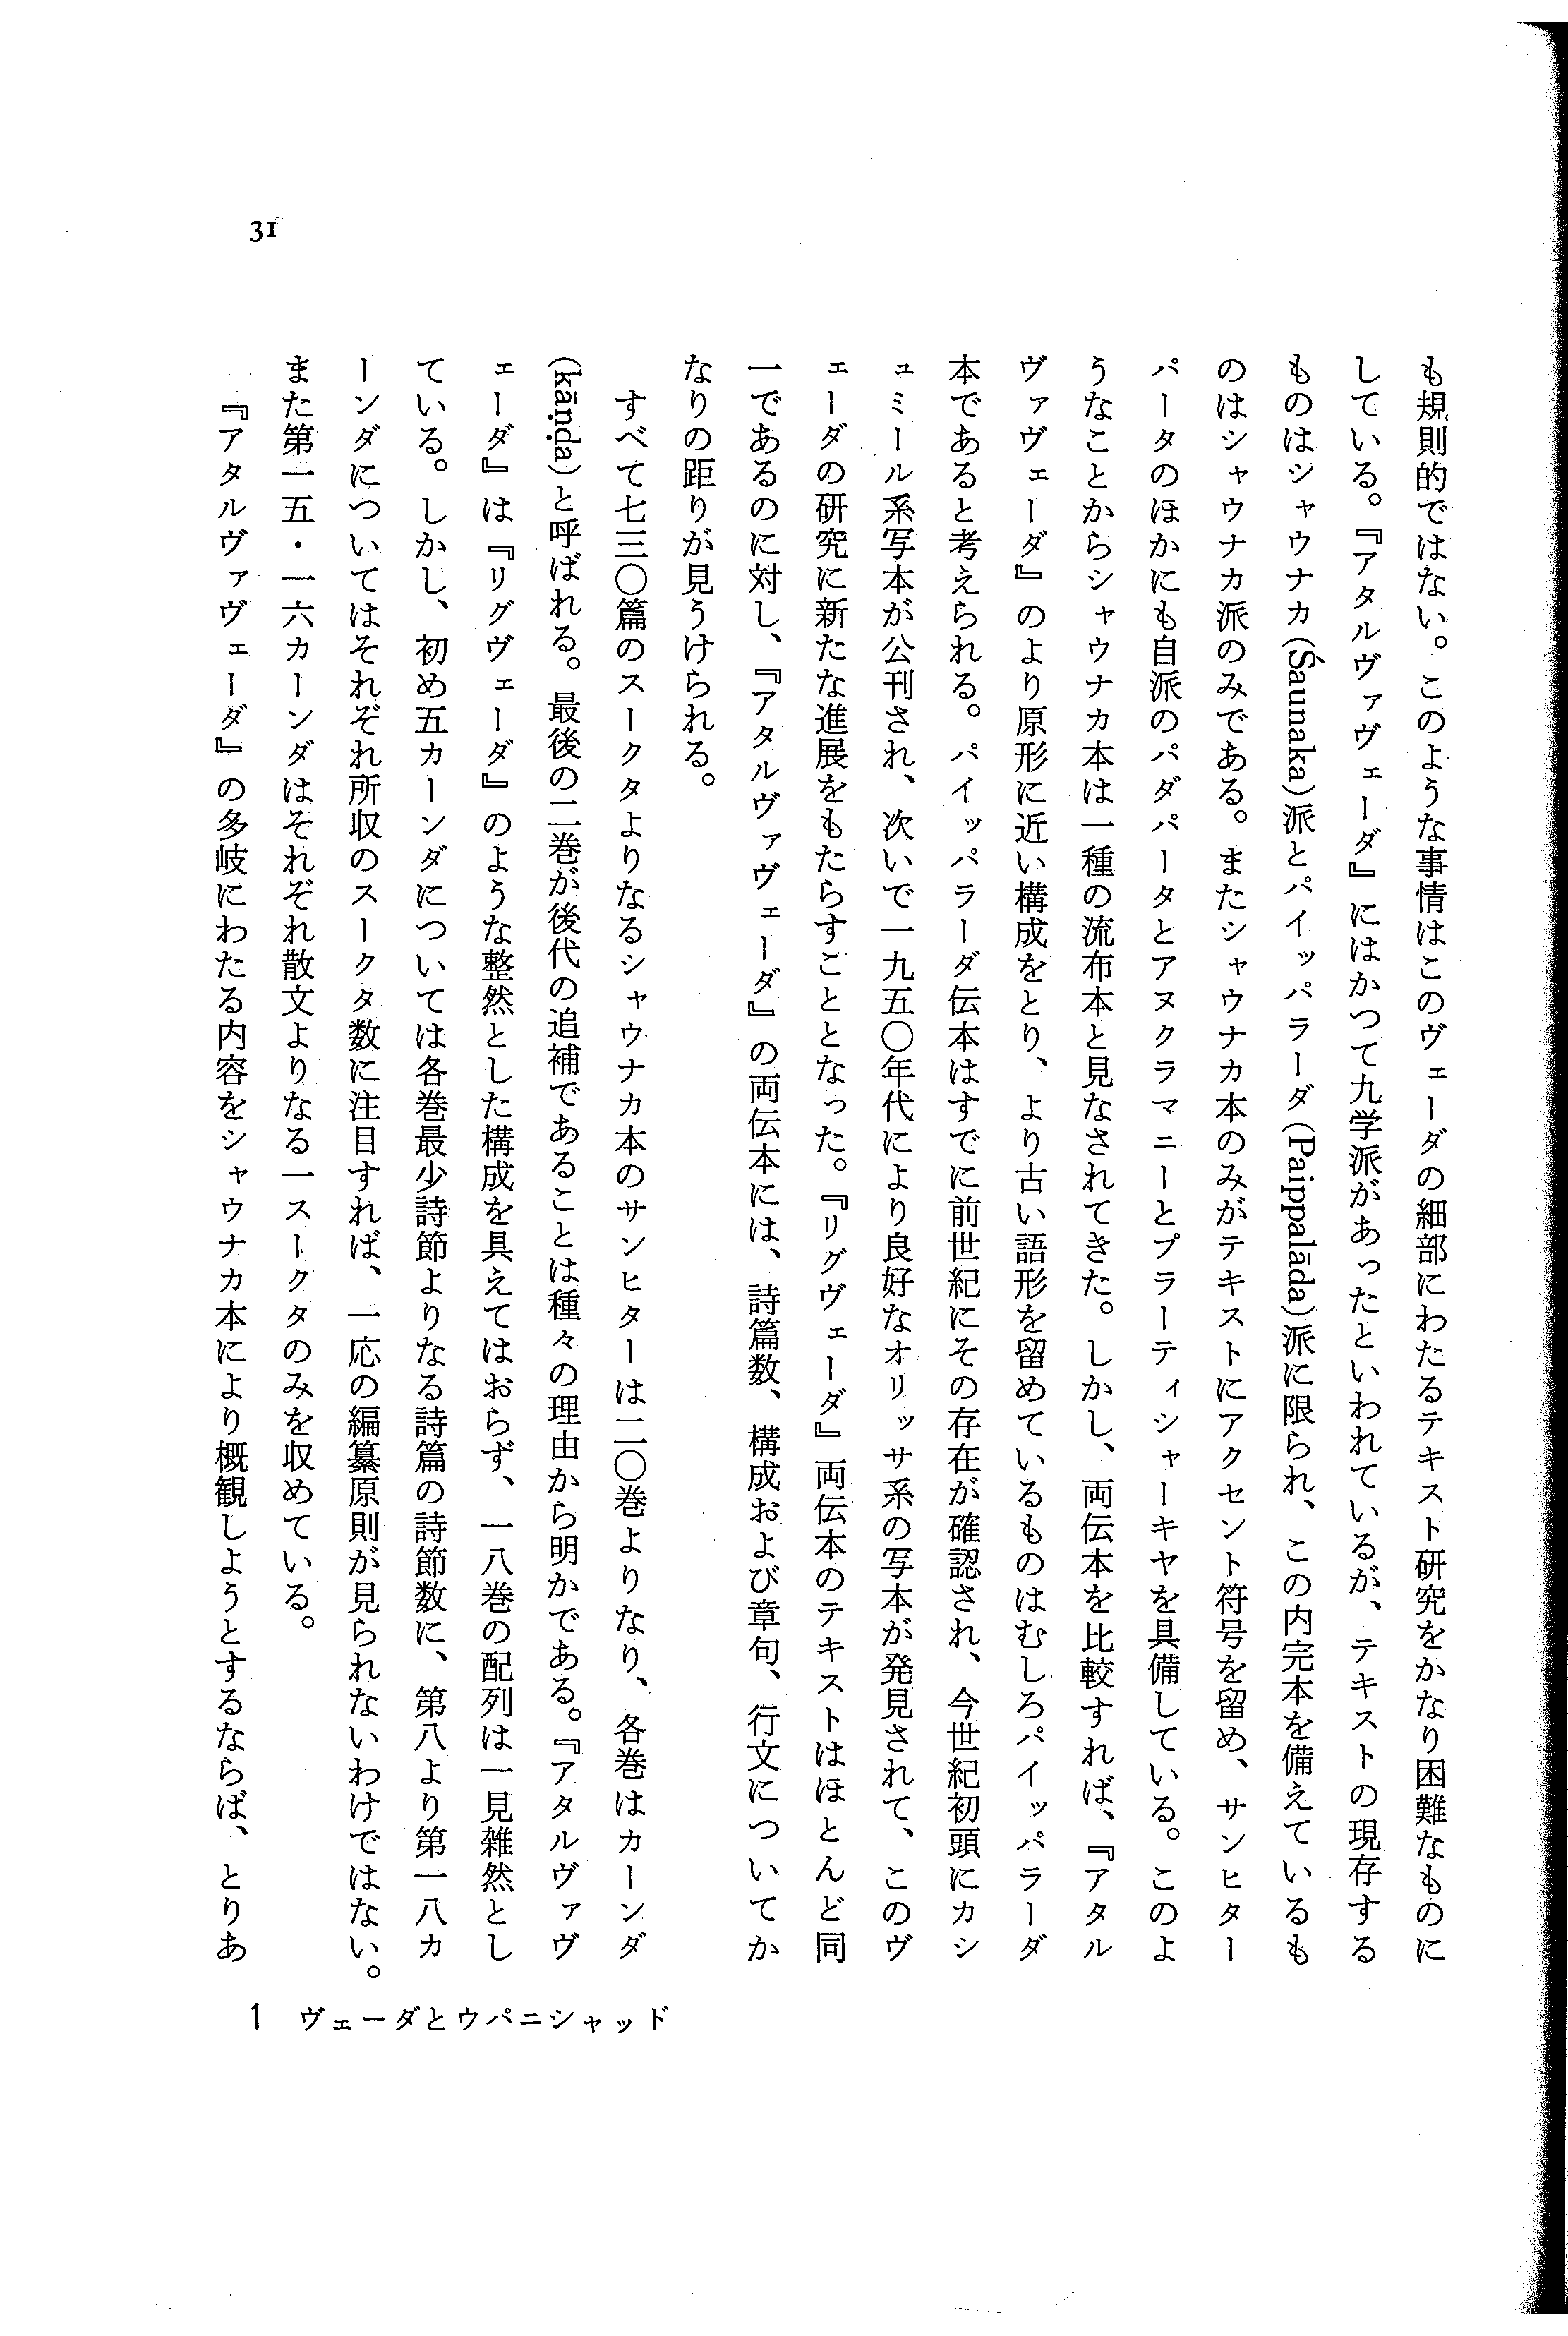 31
も規則的ではない。このような事情はこのヴェーダの細部にわたるテキスト研究をかなり困難なものに
している。『アタルヴァヴェーダ』にはかつて九学派があったといわれているが、テキストの現存する
ものはシャウナカ(Śaunaka)派とパイッパラーダ(Paippalāda)派に限られ、この内完本を備えているも
のはシャウナカ派のみである。またシャウナカ本のみがテキストにアクセント符号を留め、サンヒター
パータのほかにも自派のパダパータとアヌクラマニーとプラーティシャーキヤを具備している。このよ
うなことからシャウナカ本は一種の流布本と見なされてきた。しかし、両伝本を比較すれば、『アタル
ヴァヴェーダ』のより原形に近い構成をとり、より古い語形を留めているものはむしろパイッパラーダ
本であると考えられる。パイッパラーダ伝本はすでに前世紀にその存在が確認され、今世紀初頭にカシ
ュミール系写本が公刊され、次いで一九五〇年代により良好なオリッサ系の写本が発見されて、このヴ
ェーダの研究に新たな進展をもたらすこととなった。『リグヴェーダ』両伝本のテキストはほとんど同
一であるのに対し、『アタルヴァヴェーダ』の両伝本には、詩篇数、構成および章句、行文についてか
なりの距りが見うけられる。
すべて七三〇篇のスークタよりなるシャウナカ本のサンヒターは二〇巻よりなり、各巻はカーンダ
(kāṇḍa)と呼ばれる。最後の二巻が後代の追補であることは種々の理由から明かである。『アタルヴァヴ
ェーダ』は『リグヴェーダ』のような整然とした構成を具えてはおらず、一八巻の配列は一見雑然とし
ている。しかし、初め五カーンダについては各巻最少詩節よりなる詩篇の詩節数に、第八より第一八カ
ーンダについてはそれぞれ所収のスークタ数に注目すれば、一応の編纂原則が見られないわけではない。
また第一五・一六カーンダはそれぞれ散文よりなる一スークタのみを収めている。
『アタルヴァヴェーダ』の多岐にわたる内容をシャウナカ本により概観しようとするならば、とりあ
1 ヴェーダとウパニシャッド